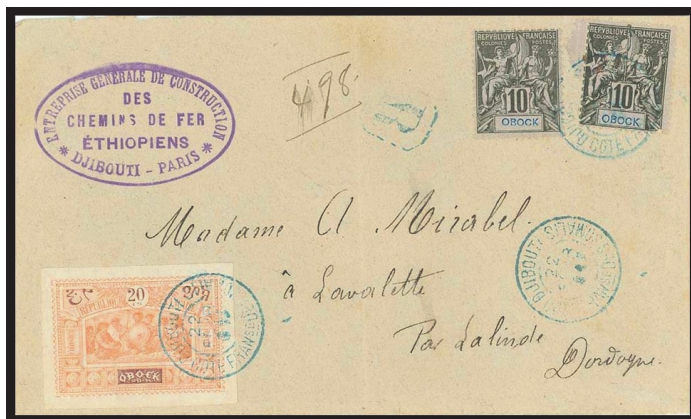 ENTREPRISE GÉNÉRALE DE CONSTRUCTION
DES
CHEMINS DE FER
ÉTHIOPIENS
* DJIBOUTI - PARIS *
98
REPUBLIQUE FRANÇAISE
COLONIES POSTES
10
OBOCK
REPUBLIQUE FRANÇAISE
COLONIES POSTES
10
OBOCK
Madame A Mirabel.
DJIBOUTI
22
à Lavalette
Par Lalinde
Dordogne.
20
OBOCK
22